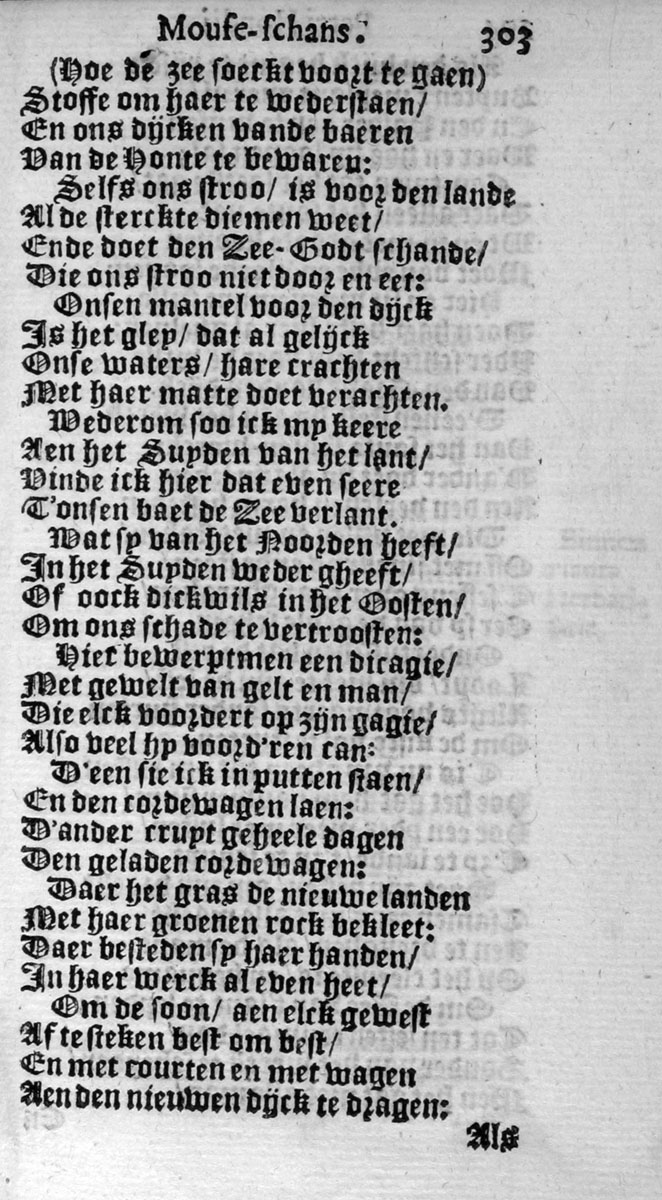 Mouse-schans. 303
(Hoe de zee soeckt voort te gaen)
Stoffe om haer te wederstaen/
En ons dijcken vande baeren
Van de Honte te bewaren:
Selfs ons stroo/ is voor den lande
Al de sterckte diemen weet/
Ende doet den Zee-Godt schande/
Die ons stroo niet door en eet:
Onsen mantel voor den dijck
Is het gley/ dat al gelijck
Onse waters/ hare crachten
Met haer matte doet verachten.
Wederom soo ick my keere
Aen het Suyden van het lant/
Vinde ick hier dat even seere
T'onsen baet de Zee verlant.
Wat sy van het Noorden heeft/
In het Suyden weder gheeft/
Of oock dickwils in het Oosten/
Om ons schade te vertroosten:
Hier bewerptmen een dicagie/
Met gewelt van gelt en man/
Die elck voordert op zijn gagie/
Also veel hy voord'ren can:
D'een sie ick in putten staen/
En den cordewagen laen:
D'ander crupt geheele dagen
Den geladen cordewagen:
Daer het gras de nieuwe landen
Met haer groenen rock bekleet:
Daer besteden sy haer handen/
In haer werck al even heet/
Om de soon/ aen elck gewest
Af te steken best om best/
En met courten en met wagen
Aen den nieuwen dijck te dragen:
Als